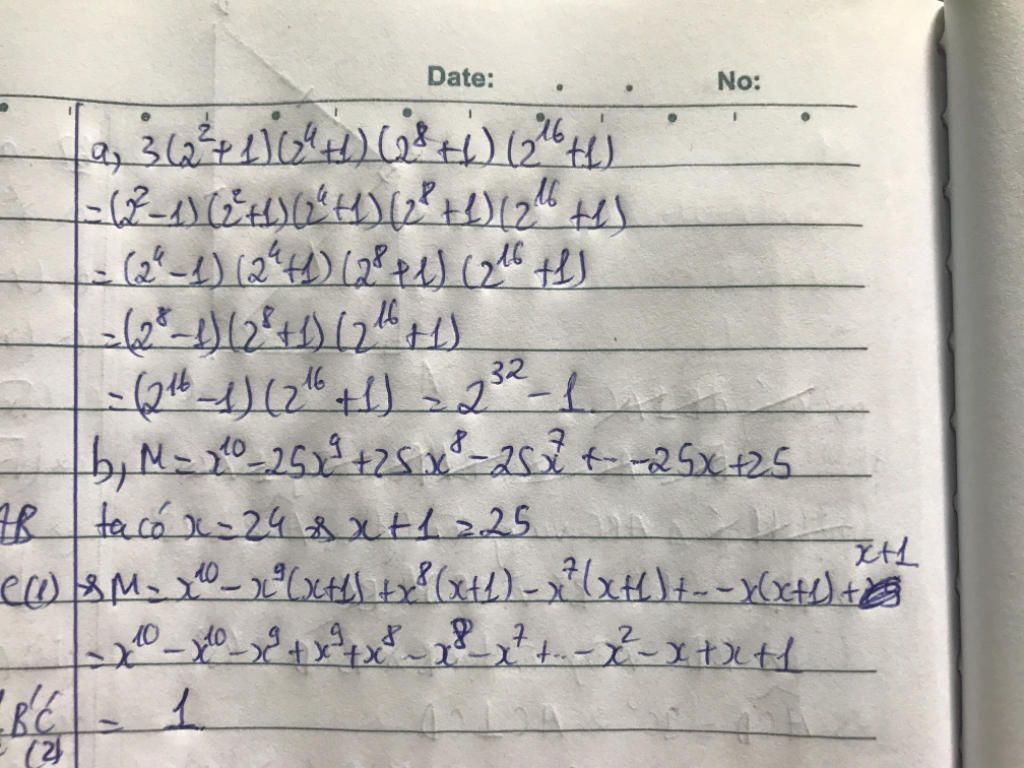 Date: No:
a, 3(2²+1)(2⁴+1)(2⁸+1)(2¹⁶+1)
=(2²-1)(2²+1)(2⁴+1)(2⁸+1)(2¹⁶+1)
=(2⁴-1)(2⁴+1)(2⁸+1)(2¹⁶+1)
=(2⁸-1)(2⁸+1)(2¹⁶+1)
=(2¹⁶-1)(2¹⁶+1) = 2³²-1
b, M=x¹⁰-25x⁹+25x⁸-25x⁷+...-25x+25
ta có x=24 => x+1=25
=> M=x¹⁰-x⁹(x+1)+x⁸(x+1)-x⁷(x+1)+...-x(x+1)+x+1
=x¹⁰-x¹⁰-x⁹+x⁹+x⁸-x⁸-x⁷+...-x²-x+x+1
B'C' = 1
(2)